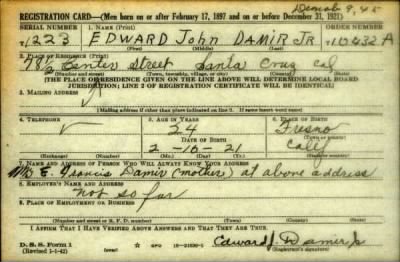 REGISTRATION CARD—(Men born on or after February 17, 1897 and on or before December 31, 1921)
SERIAL NUMBER 1. NAME (Print) ORDER NUMBER
1223 EDWARD John DAMIR JR 10432 A
(First) (Middle) (Last)
2. PLACE OF RESIDENCE (Print)
Center Street Santa Cruz Cal
(Number and street) (Town, township, village, or city) (County) (State)
[THE PLACE OF RESIDENCE GIVEN ON THE LINE ABOVE WILL DETERMINE LOCAL BOARD
JURISDICTION; LINE 2 OF REGISTRATION CERTIFICATE WILL BE IDENTICAL]
3. MAILING ADDRESS
[Mailing address if other than place indicated on line 2. If same insert word same]
4. TELEPHONE 5. AGE IN YEARS 6. PLACE OF BIRTH
24 Fresno
DATE OF BIRTH (Town or county)
2-16-21 Calif
(Exchange) (Number) (Mo.) (Day) (Yr.) (State or country)
7. NAME AND ADDRESS OF PERSON WHO WILL ALWAYS KNOW YOUR ADDRESS
E. Francis Damir (mother) at above address
8. EMPLOYER'S NAME AND ADDRESS
Not so far
9. PLACE OF EMPLOYMENT OR BUSINESS
(Number and street or R. F. D. number) (Town) (County) (State)
I AFFIRM THAT I HAVE VERIFIED ABOVE ANSWERS AND THAT THEY ARE TRUE.
D. S. S. Form 1 GPO Edward J. Damir Jr
(Revised 1-1-42) (Registrant's signature)